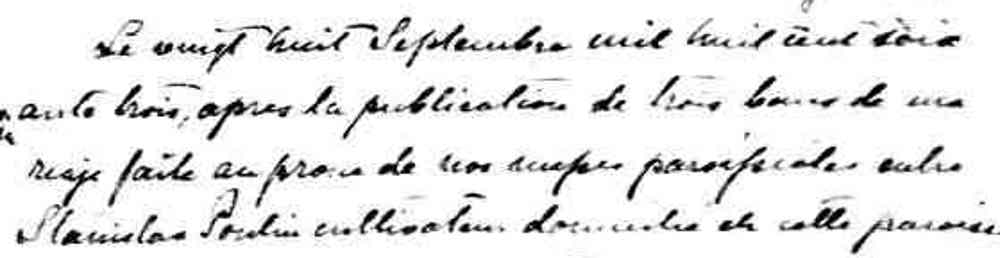 Le vingt huit Septembre mil huit cent soix
ante trois, après la publication de trois bans de ma
riage faite au prône de nos messes paroissiales entre
Stanislas Poulin cultivateur domicilié en cette paroisse